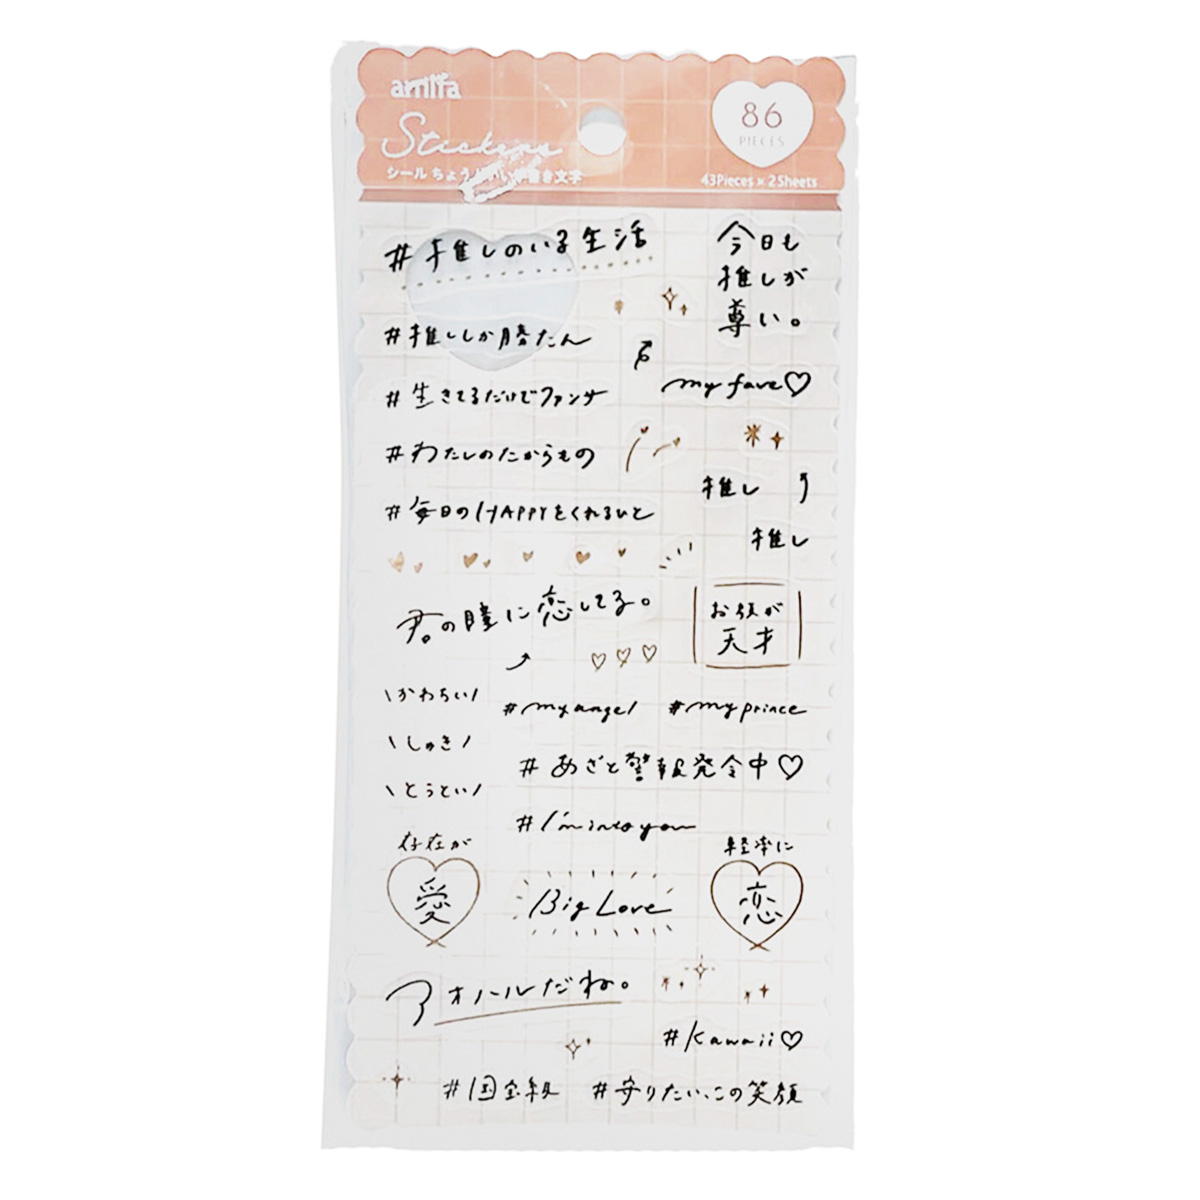 amifa
86
PIECES
Stickers
シール ちょうどいい手書き文字
43Pieces × 2Sheets
#推しのいる生活
今日も
推しが
尊い。
#推ししか勝たん
my fave♡
#生きてるだけでファンサ
#わたしのたからもの
推し
#毎日のHAPPYをくれるひと
推し
君の瞳に恋してる。
お顔が
天才
\かわちい/
#my angel
#my prince
\しゅき/
#あざと警報発令中♡
\とうとい/
#I'm into you
存在が
愛
Big Love
軽率に
恋
アオハルだね。
#Kawaii♡
#国宝級
#守りたい、この笑顔